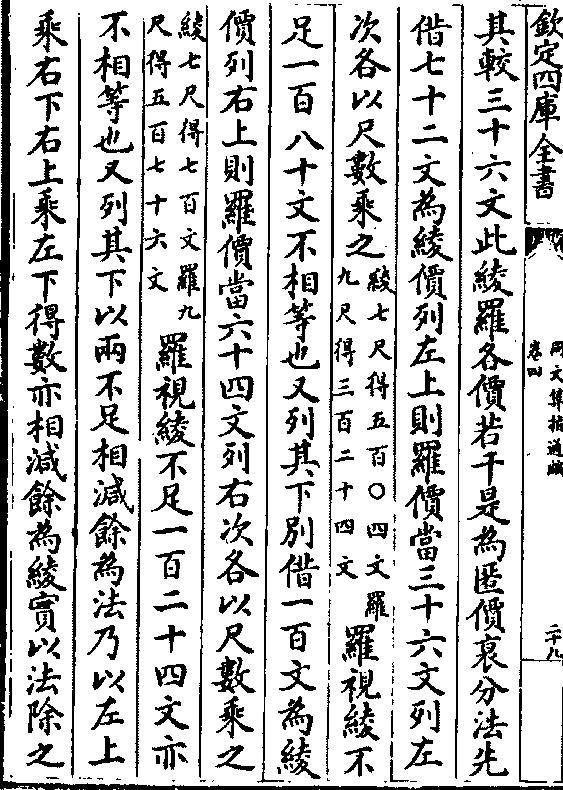 欽定四庫全書
同文算指通編
卷四
二十九
其較三十六文此綾羅各價若干是為匿價衰分法先
借七十二文為綾價列左上則羅價當三十六文列左
次各以尺數乘之綾七尺得五百〇四文羅
九尺得三百二十四文羅視綾不
足一百八十文不相等也又列其下別借一百文為綾
價列右上則羅價當六十四文列右次各以尺數乘之
綾七尺得七百文羅九
尺得五百七十六文羅視綾不足一百二十四文亦
不相等也又列其下以兩不足相減餘為法乃以左上
乘右下右上乘左下得數亦相減餘為綾實以法除之